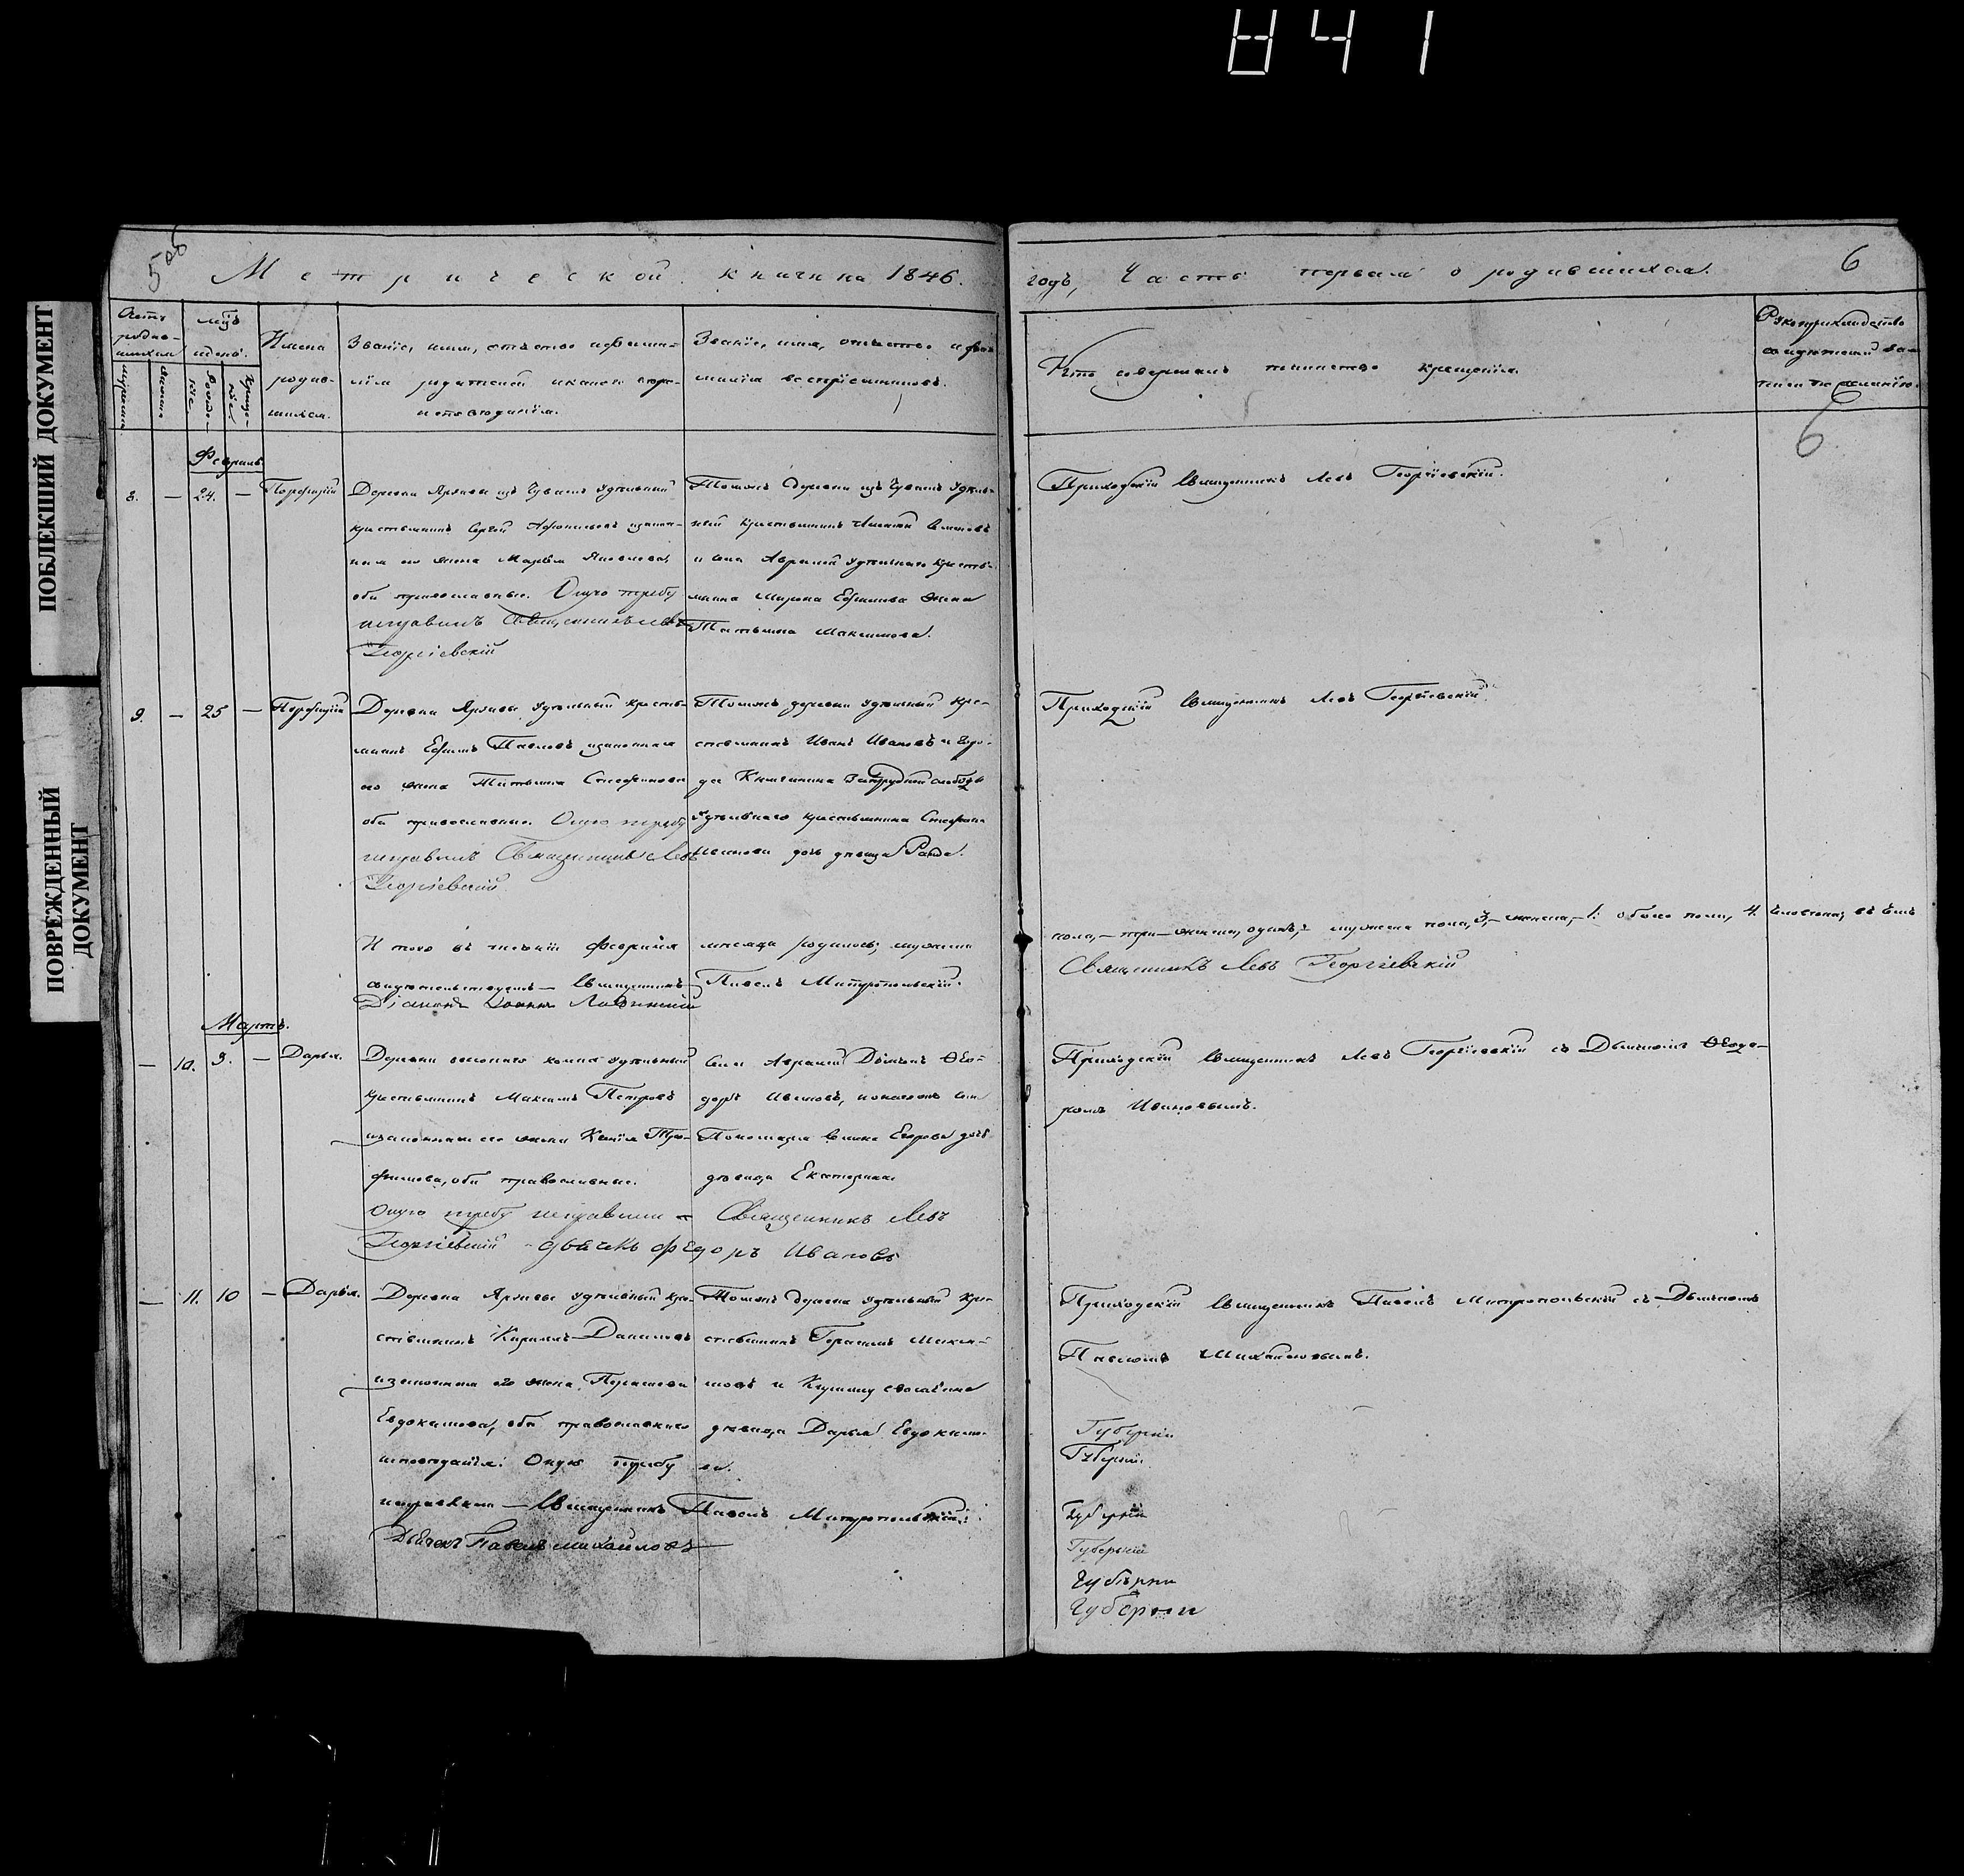 841
ПОБЛЕКШИЙ ДОКУМЕНТ
ПОВРЕЖДЕННЫЙ ДОКУМЕНТ
5 об
Метрической книги на 1846.
годъ, Часть первая о родившихся.
6
Счетъ родив-
шихся
мужеска
женска
мцъ и день.
Рожде-
нія
Креще-
нія
Имена
родив-
шихся.
Званіе, имя, отчество и фами-
лія родителей и какого веро-
исповѣданія.
Званіе, имя, отчество и фа-
милія воспріемниковъ.
Кто совершалъ таинство крещенія.
Рукоприкладство
свидѣтелей за-
писи по желанію.
6
Февраль
8. — 24. — Порфирій
Деревни Яравы изъ Чувашъ удѣльный
крестьянинъ Сергій законн-
ная его жена Марья Яковлева,
оба православные. Оную требу
исправилъ Священникъ Левъ
Георгіевскій
Тойжъ деревни изъ Чувашъ удѣль-
ный крестьянинъ
и села удѣльнаго кресть-
янина Мирона Ефимова жена
Татьяна Максимова.
Приходскій Священникъ Левъ Георгіевскій.
9. — 25 — Порфирій
Деревни Яравы удѣльный кресть-
янинъ Ефимъ Павловъ и законная
его жена Татьяна Стефанова
оба православные. Оную требу
исправилъ Священникъ Левъ
Георгіевскій
Тойжъ деревни удѣльный кре-
стьянинъ Иванъ Ивановъ и горо-
да Княгинина слободы
удѣльнаго крестьянина Стефана
Иванова дочь дѣвица
Приходскій Священникъ Левъ Георгіевскій
Итого въ теченіи Февраля мѣсяца родилось; мужеска
пола, — три — женска, одинъ, — мужеска пола, 3, — женска, — 1. обоего пола, 4.
свидѣтельствуемъ — Священникъ Павелъ Митропольскій.
Священникъ Левъ Георгіевскій
Діаконъ Іоаннъ
Мартъ.
— 10. 9. — Дарья.
Деревни удѣльный
крестьянинъ Максимъ Петровъ
и законная его жена Ксенія Тро-
фимова, оба православные.
Оную требу исправили — Священникъ Левъ
Георгіевскій — дьячекъ Федоръ Ивановъ
Села Дьячекъ Ѳео-
доръ Ивановъ, и
Пономаря Егорова дочь
дѣвица Екатерина.
Приходскій Священникъ Левъ Георгіевскій съ Дьячкомъ Ѳеодо-
ромъ Ивановымъ.
— 11. 10 — Дарья.
Деревни Яравы удѣльный кре-
стьянинъ Кирилъ Даниловъ
и законная его жена
Евдокимова, оба православнаго
исповѣданія. Оную требу
исправили — Священникъ Павелъ Митропольскій:
Дьячекъ Павелъ Михайловъ
Тойжъ деревни удѣльный кре-
стьянинъ Герасимъ
и
дѣвица Дарья Евдокимо-
ва.
Приходскій Священникъ Павелъ Митропольскій съ Дьячкомъ
Павломъ Михайловымъ.
Губерніи
Губерніи
Губерніи
Губерніи
Губерни
Губерни